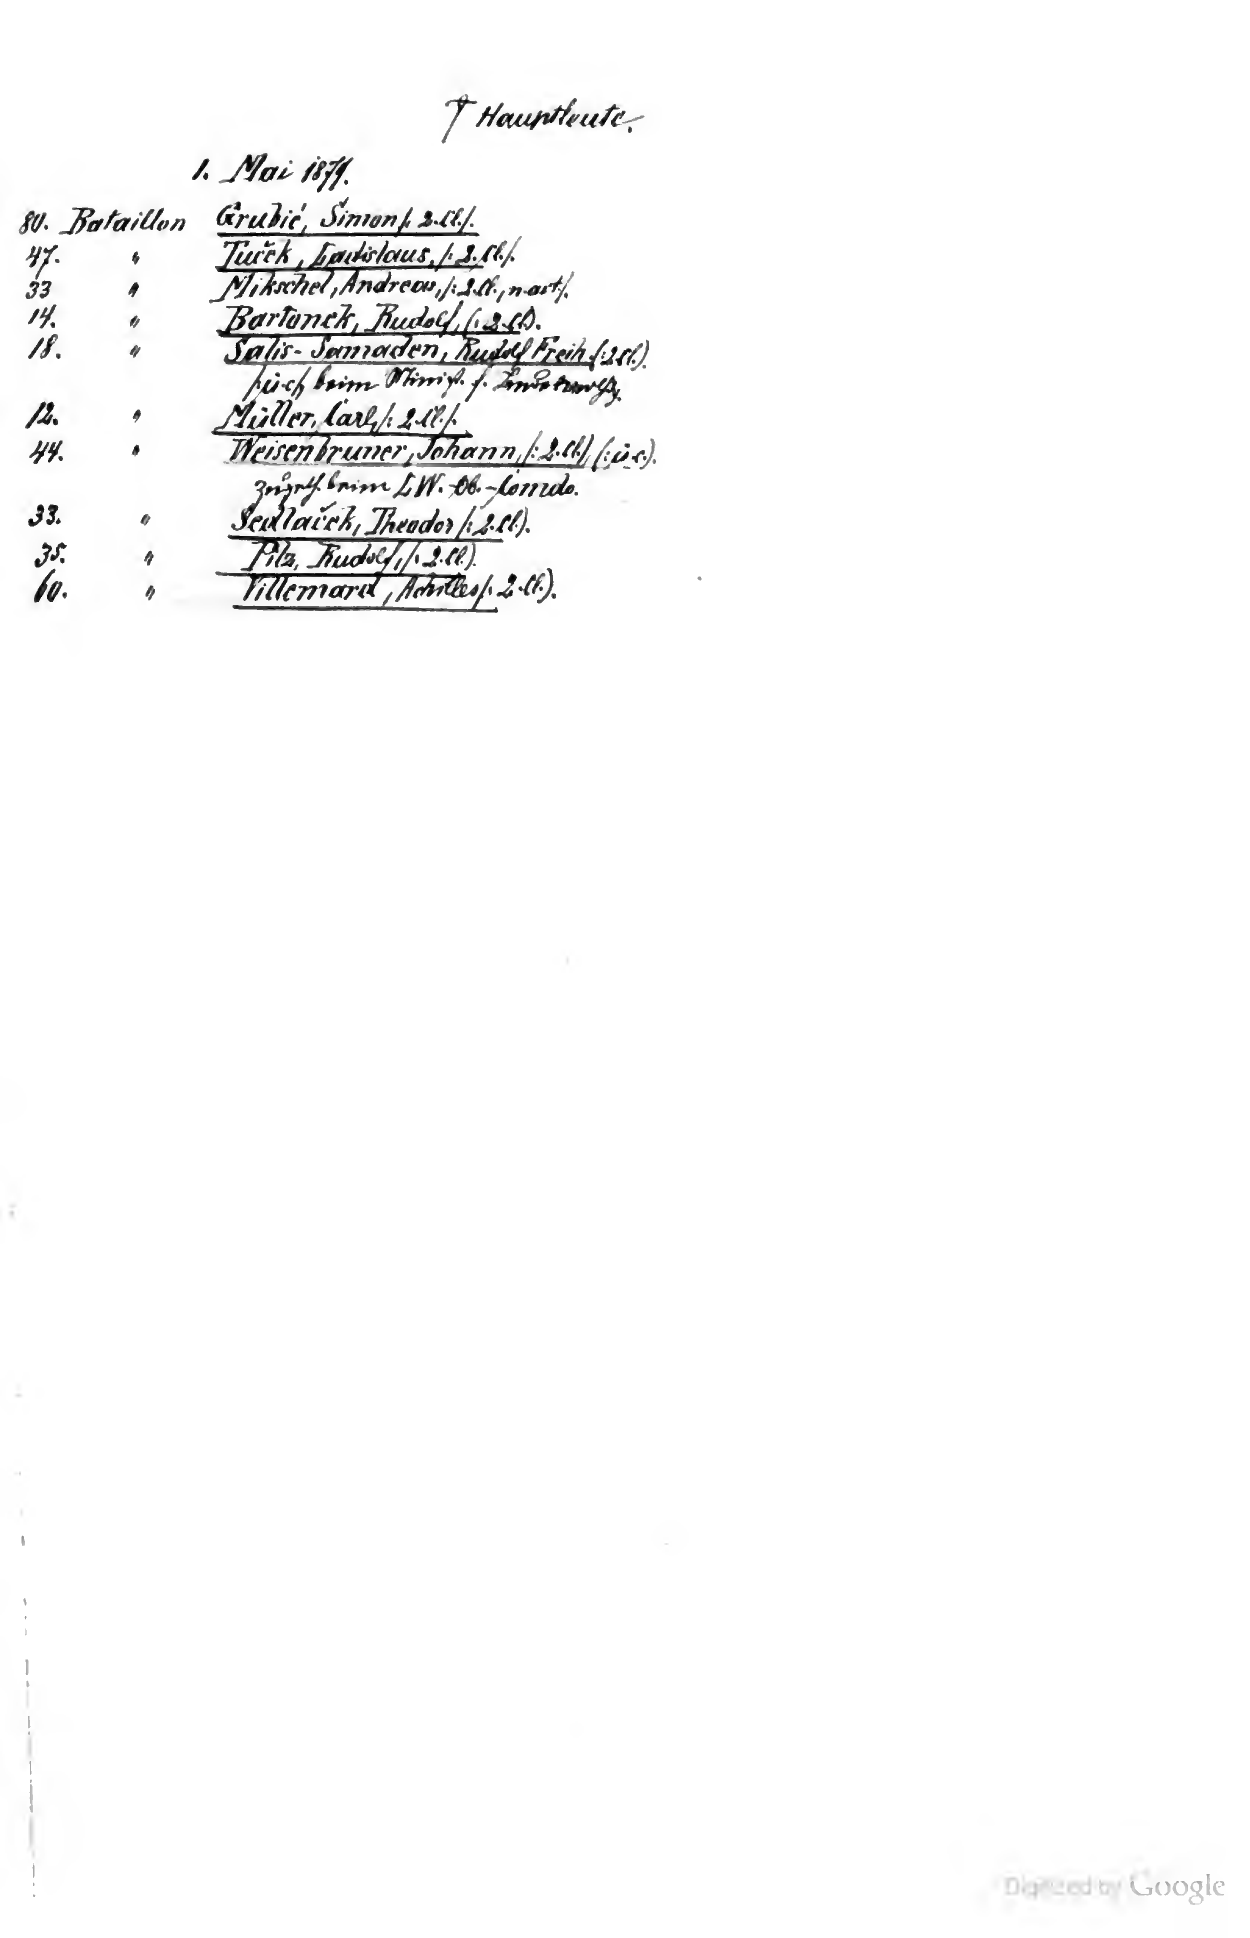 † Hauptleute.
1. Mai 1879.
80. Bataillon Grubić, Šimon /: 2. Cl./.
47. " Tuček, Ladislaus, /: 2. Cl./.
33 " Mikschel, Andreas, /: 2. Cl., n. act/.
14. " Bartunek, Rudolf, (: 2. Cl).
18. " Salis-Samaden, Rudolf Freih (: 2. Cl.)
beim Minist. f.
12. " Müller, Carl, /: 2. Cl./.
44. " Weisenbruner, Johann, /: 2. Cl./, (: ü. c.).
beim LW.-Ob.-Comdo.
33. " Sedlaček, Theodor /: 2. Cl.).
35. " Pilz, Rudolf, /: 2. Cl.).
60. " Villemard, Achilles /: 2. Cl.).
Digitized by Google